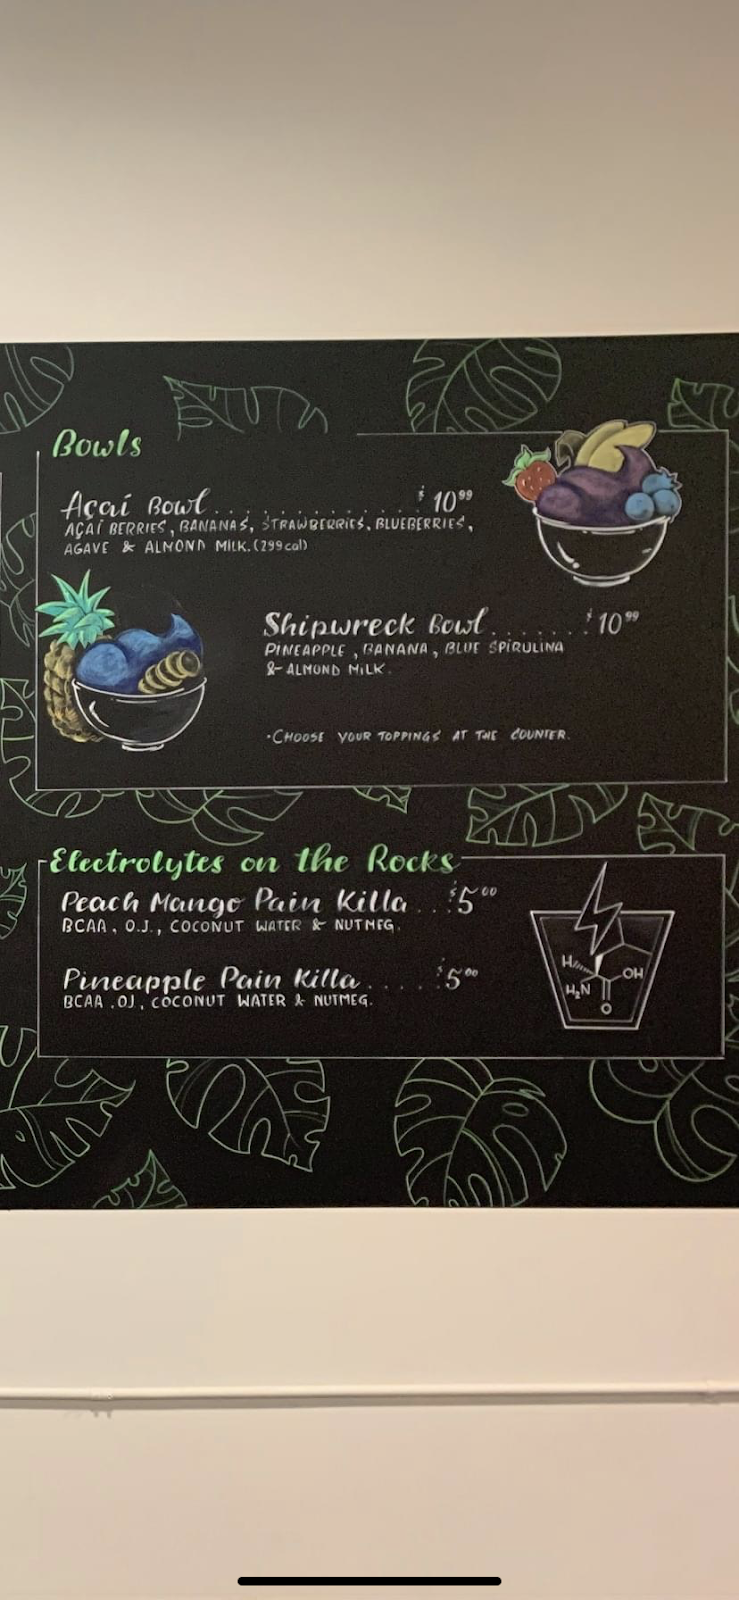 Bowls
Açaí Bowl............$10.99
AÇAÍ BERRIES, BANANAS, STRAWBERRIES, BLUEBERRIES,
AGAVE & ALMOND MILK.(299cal)
Shipwreck Bowl.......$10.99
PINEAPPLE, BANANA, BLUE SPIRULINA
& ALMOND MILK.
·CHOOSE YOUR TOPPINGS AT THE COUNTER.
Electrolytes on the Rocks
Peach Mango Pain Killa...$5.00
BCAA, O.J., COCONUT WATER & NUTMEG.
Pineapple Pain Killa.....$5.00
BCAA, OJ, COCONUT WATER & NUTMEG.
H
OH
H₂N
O